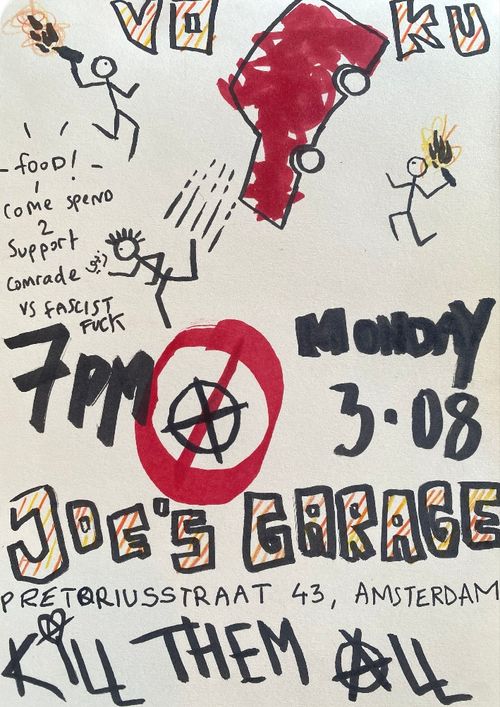 VO KU
- FOOD! -
COME SPEND
2
SUPPORT
COMRADE
VS FASCIST
FUCK
7PM
MONDAY
3.08
JOE'S GARAGE
PRETORIUSSTRAAT 43, AMSTERDAM
KILL THEM ALL